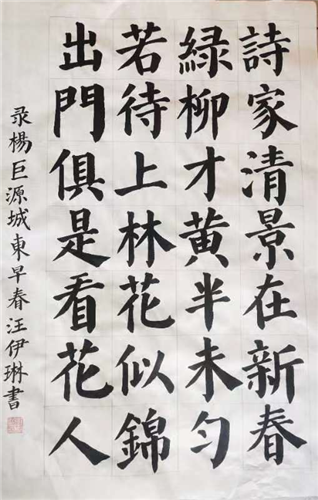 詩家清景在新春
緑柳才黄半未匀
若待上林花似錦
出門俱是看花人
录楊巨源城東早春汪伊琳書